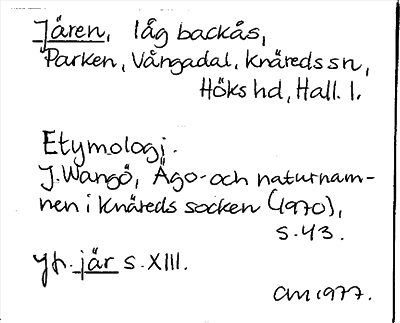 Jären, låg backås,
Parken, Vångadal, Knäreds sn,
Höks hd, Hall. l.
Etymologi.
J. Wangö, Ägo- och naturnam-
nen i Knäreds socken (1970),
s. 43.
Yfr. jär s. XIII.
CM 1977.